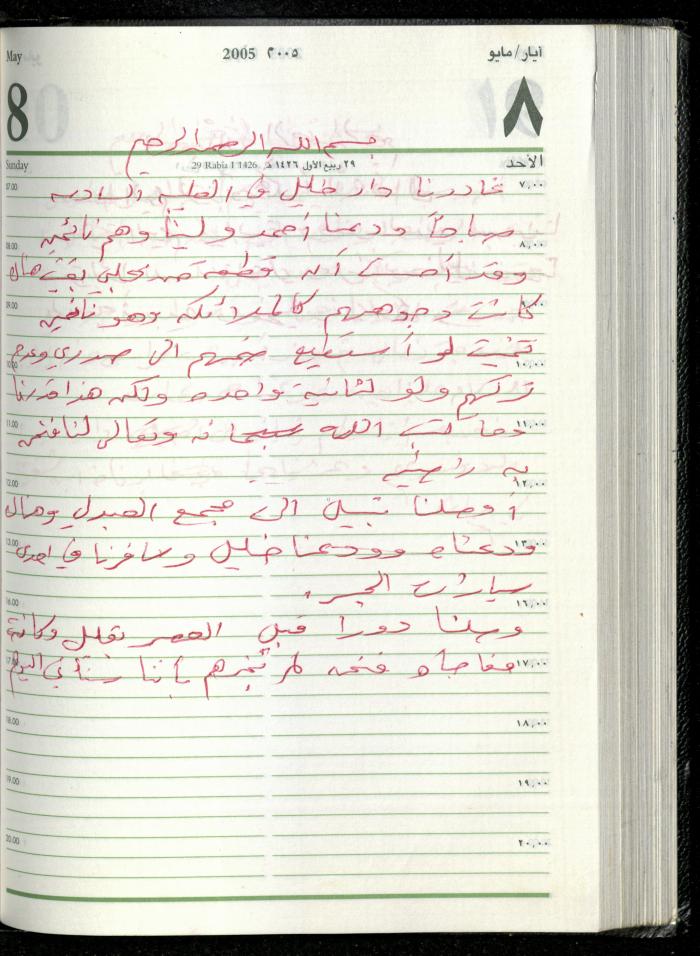 May 2005 ٢٠٠٥ أيار/مايو
8 ٨
بسم الله الرحمن الرحيم
Sunday 29 Rabia I 1426 ٢٩ ربيع الاول ١٤٢٦ هـ الأحد
07.00 ٧,٠٠
غادرنا دار خليل في السادسة
صباحاً ودعنا أحمد ولينا وهم نائمين
08.00 ٨,٠٠
وقد أحسست أن قطعة من قلبي بقيت هناك
09.00 ٩,٠٠
كانت وجوههم كالملائكة وهو نائمين
تمنيت لو أستطيع ضمهم الى صدري وعدم
10.00 ١٠,٠٠
تركهم ولو لثانية واحده ولكن هذا قدرنا
11.00 ١١,٠٠
وما كتب الله سبحانه وتعالى لنا فنحن
به راضين
12.00 ١٢,٠٠
أوصلنا نبيل الى مجمع العبدلي وهناك
13.00 ١٣,٠٠
ودعناه وودعنا خليل وسافرنا في احدى
سيارات الجسر.
16.00 ١٦,٠٠
وصلنا دورا قبل العصر بقليل وكانت
17.00 ١٧,٠٠
مفاجأه فنحن لم نخبرهم بأننا سنأتي اليوم
18.00 ١٨,٠٠
19.00 ١٩,٠٠
20.00 ٢٠,٠٠